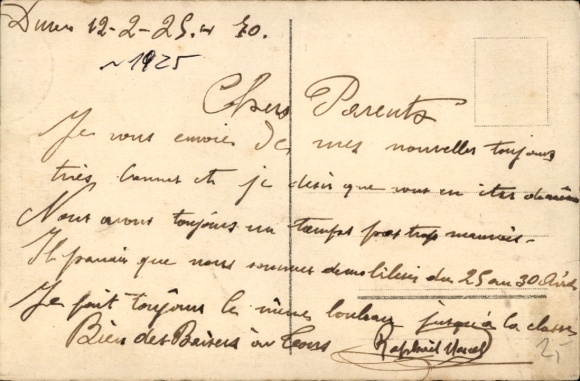 Duren 12-2-25. 70.
~ 1925
Chers Parents
Je vous envoies de mes nouvelles toujours
très bonnes et je désir que vous en
Nous avons toujours un temps pas trop mauvais -
Il parrais que nous sommes demobiliser du 25 au 30
Je fait toujours le même jusqu'à la classe
Bien des Baisers à tous Raphael Marcel
2,-